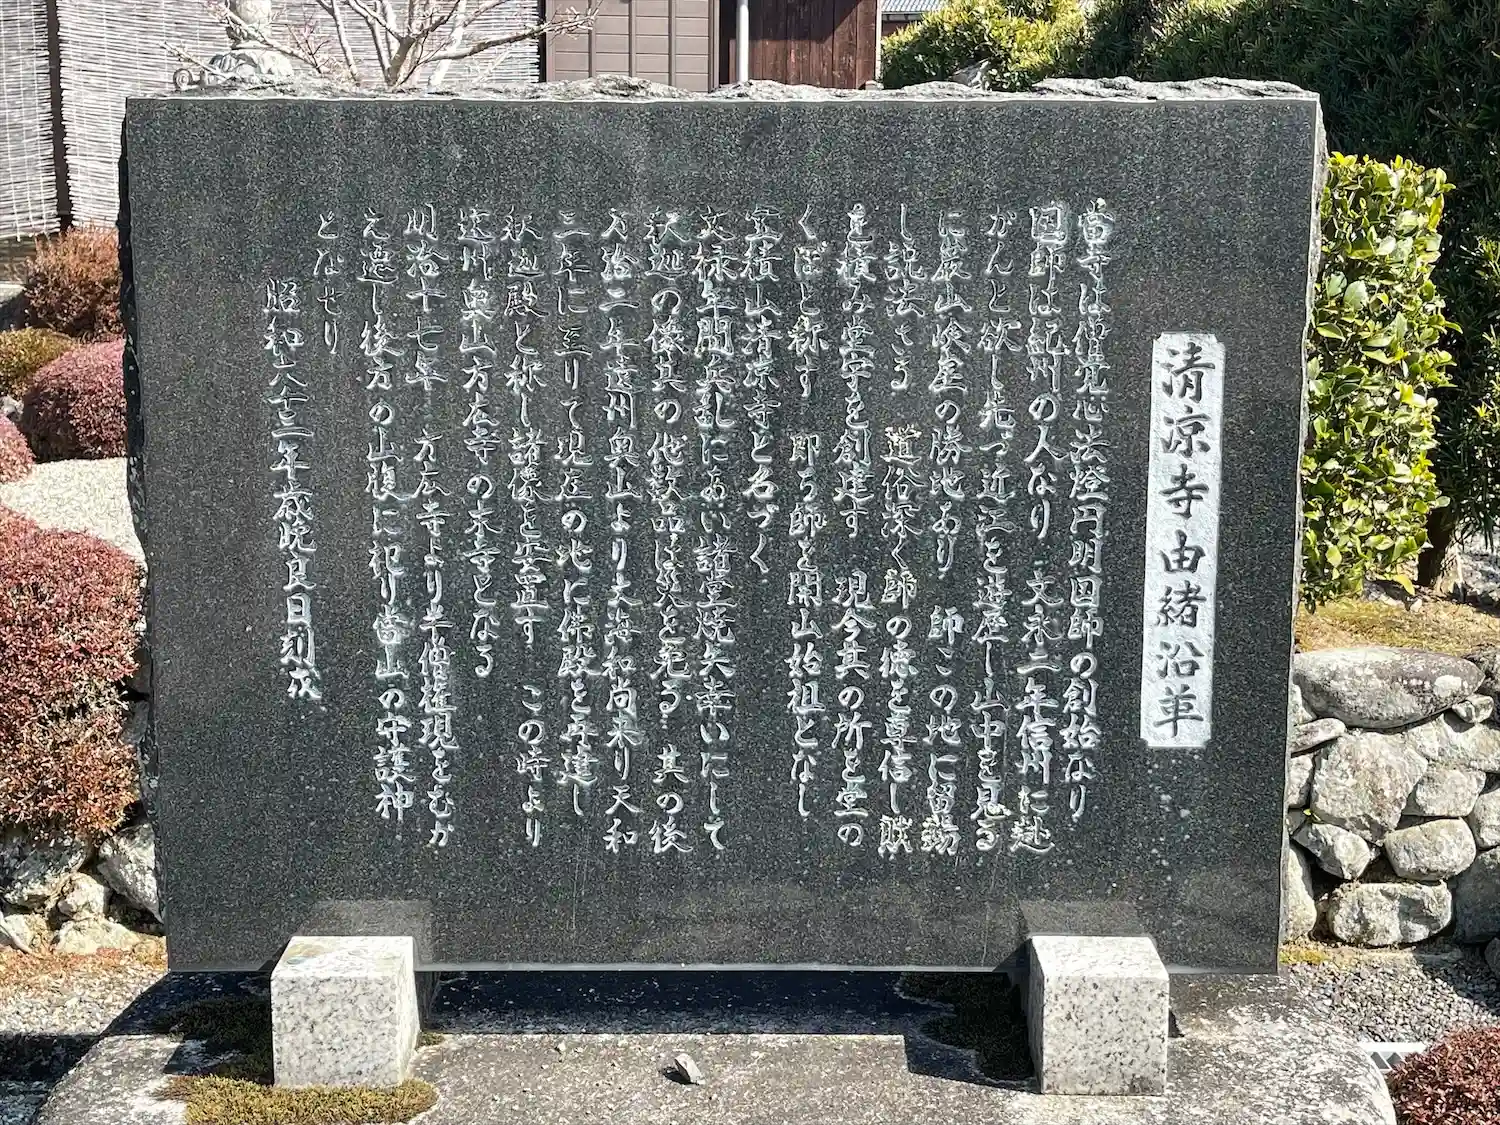 清涼寺由緒沿革
當寺は僧覚心法燈円明国師の創始なり
国師は紀州の人なり 文永二年信州に赴
かんと欲し先づ近江を遊歴し山中を見る
に巌山険崖の勝地あり 師この地に留錫
し説法さる 道俗深く師の徳を尊信し財
を積み堂宇を創建す 現今其の所を堂の
くぼと称す 即ち師を開山始祖となし
宝積山清凉寺と名づく
文禄年間兵乱にあい諸堂焼失幸いにして
釈迦の像其の他数品は災を免る 其の後
万治二年遠州奥山より大海和尚来り天和
三年に至りて現在の地に佛殿を再建し
釈迦殿と称し諸像を安置す この時より
遠州奥山方広寺の末寺となる
明治十七年 方広寺より半僧権現をむか
え遷し後方の山腹に祀り當山の守護神
となせり
昭和六十三年歳晩良日刻成